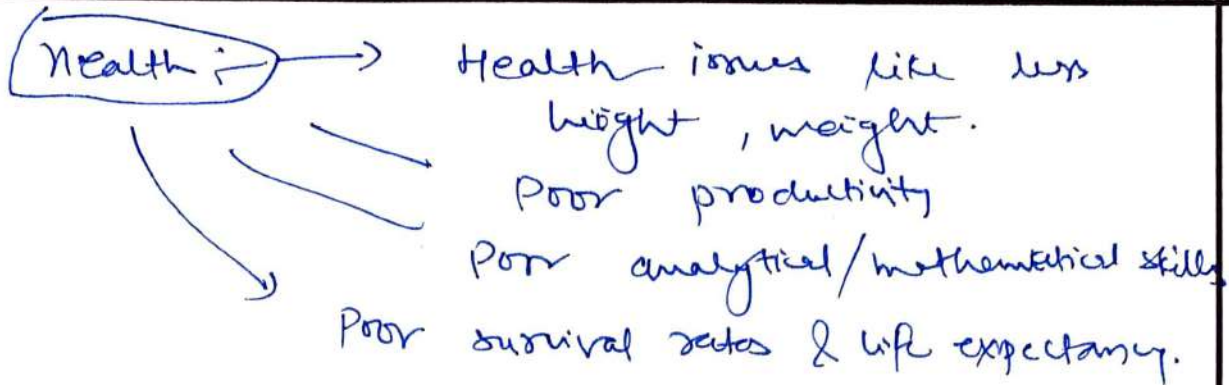 Health :- → Health issues like less
height, weight.
Poor productivity
Poor analytical/mathematical skills
Poor survival rates & life expectancy.